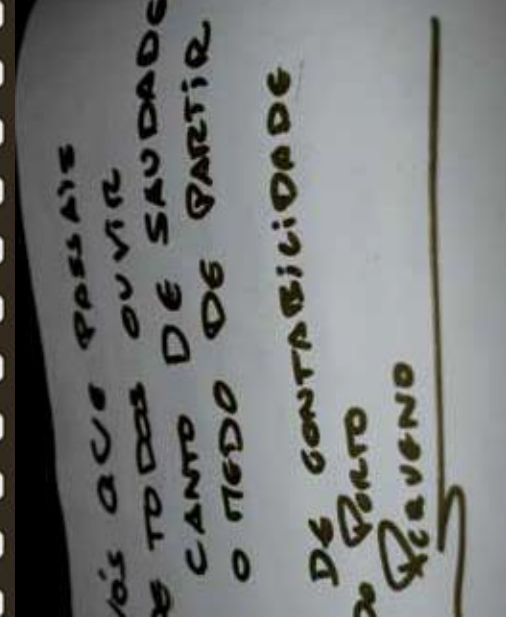 VÓS QUE PASSAIS
DE TODOS OUVIR
CANTO DE SAUDADE
O MEDO DE PARTIR
DE CONTABILIDADE
DO PORTO